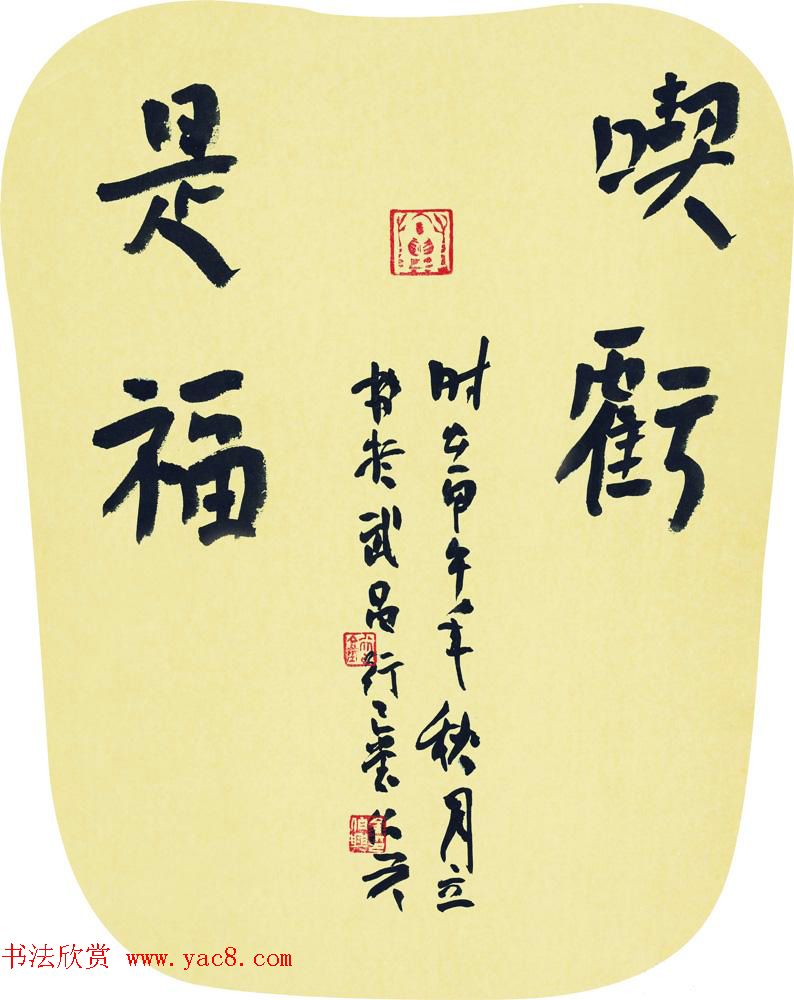 喫虧
是福
时在甲午年秋月立
书于武昌行
书法欣赏 www.yac8.com